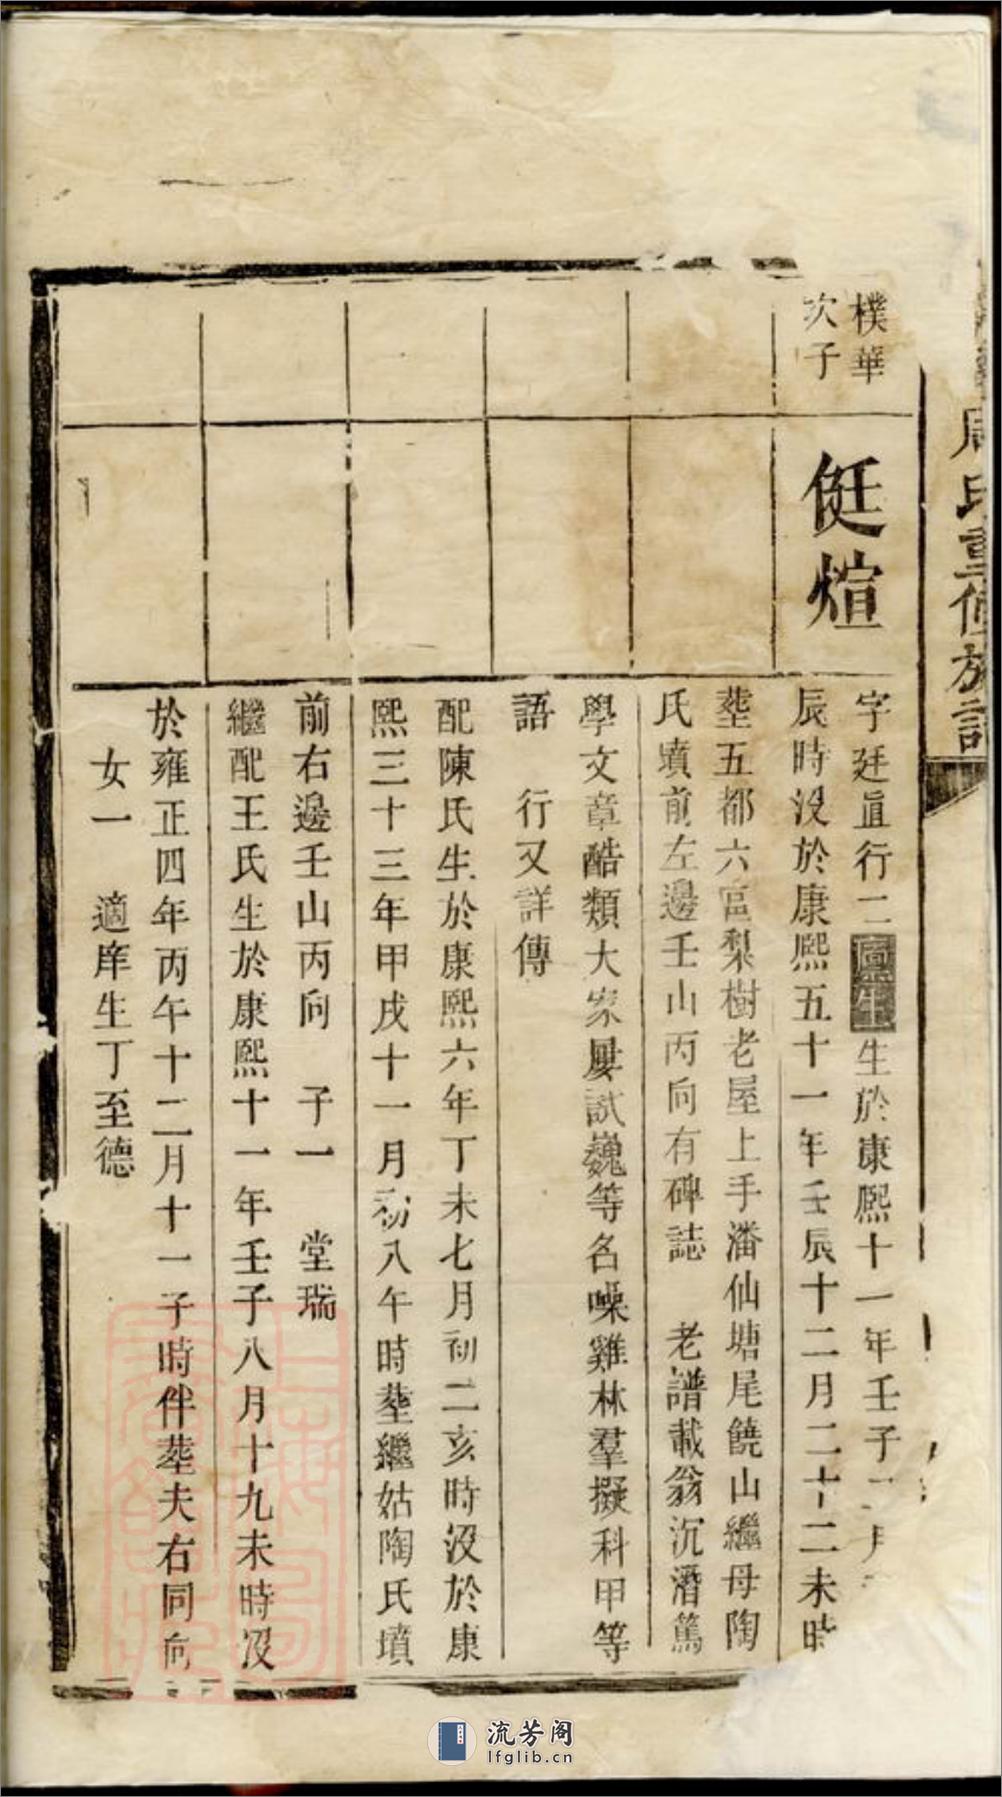 周氏重修族譜
樸華
次子
侹煊
字廷直行二廩生生於康熙十一年壬子
辰時沒於康熙五十一年壬辰十二月二十二未時
塟五都六富梨樹老屋上手潘仙塘尾饒山繼母陶
氏墳前左邊壬山丙向有碑誌 老譜載翁沉潛篤
學文章酷類大家屢試巍等名噪雞林羣擬科甲等
語 行又詳傳
配陳氏生於康熙六年丁未七月初二亥時沒於康
熙三十三年甲戌十一月初八午時塟繼姑陶氏墳
前右邊壬山丙向 子一 堂瑞
繼配王氏生於康熙十一年壬子八月十九未時沒
於雍正四年丙午十二月十一子時伴塟夫右同向
女一 適庠生丁至德
流芳阁
lfglib.cn